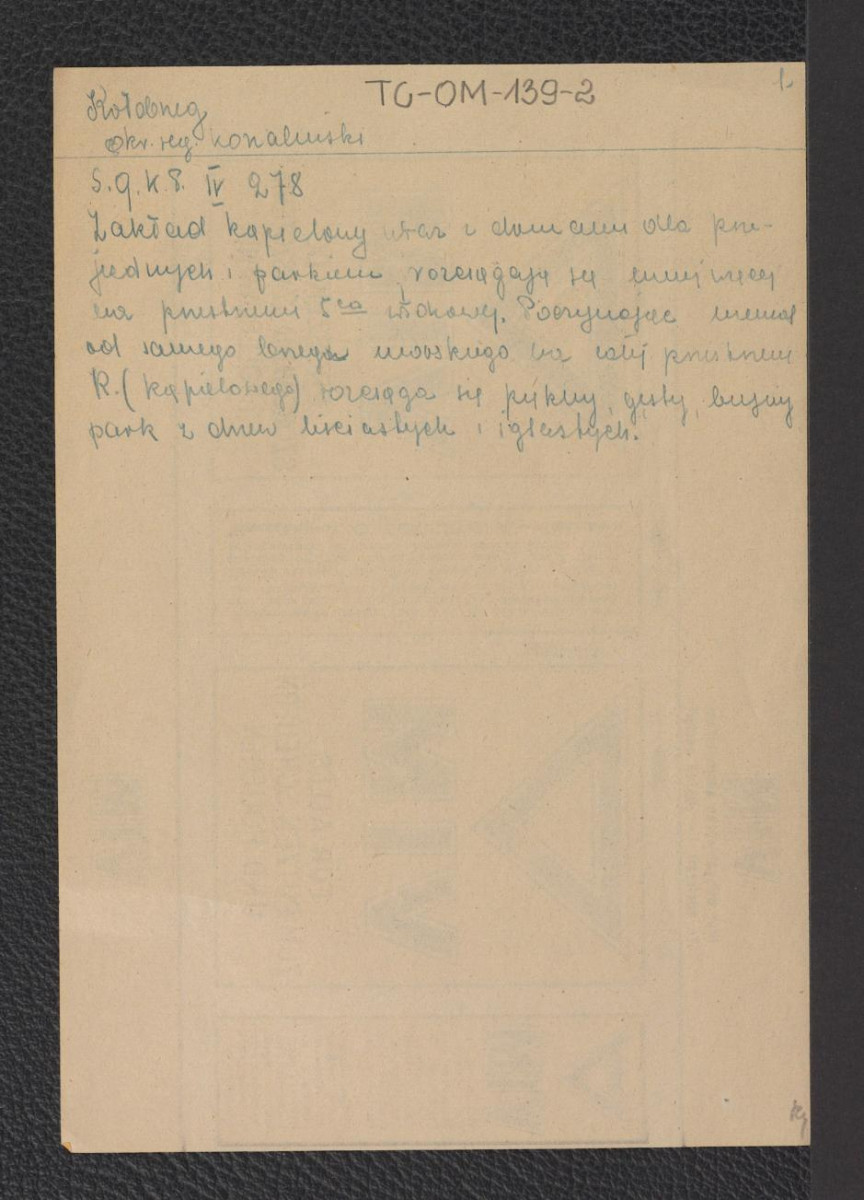 TG-OM-139-2
1.
Kołobrzeg
okr. reg. koszaliński
S. g. K. P. IV 278
Zakład kąpielowy wraz z domami dla prze-
jezdnych i parkiem rozciągają się mniej więcej
na przestrzeni 5cio włókowej. Poczynając niemal
od samego brzegu morskiego na całej przestrzeni
K. (kąpielowego) rozciąga się piękny, gęsty, bujny
park z drzew liściastych i iglastych.